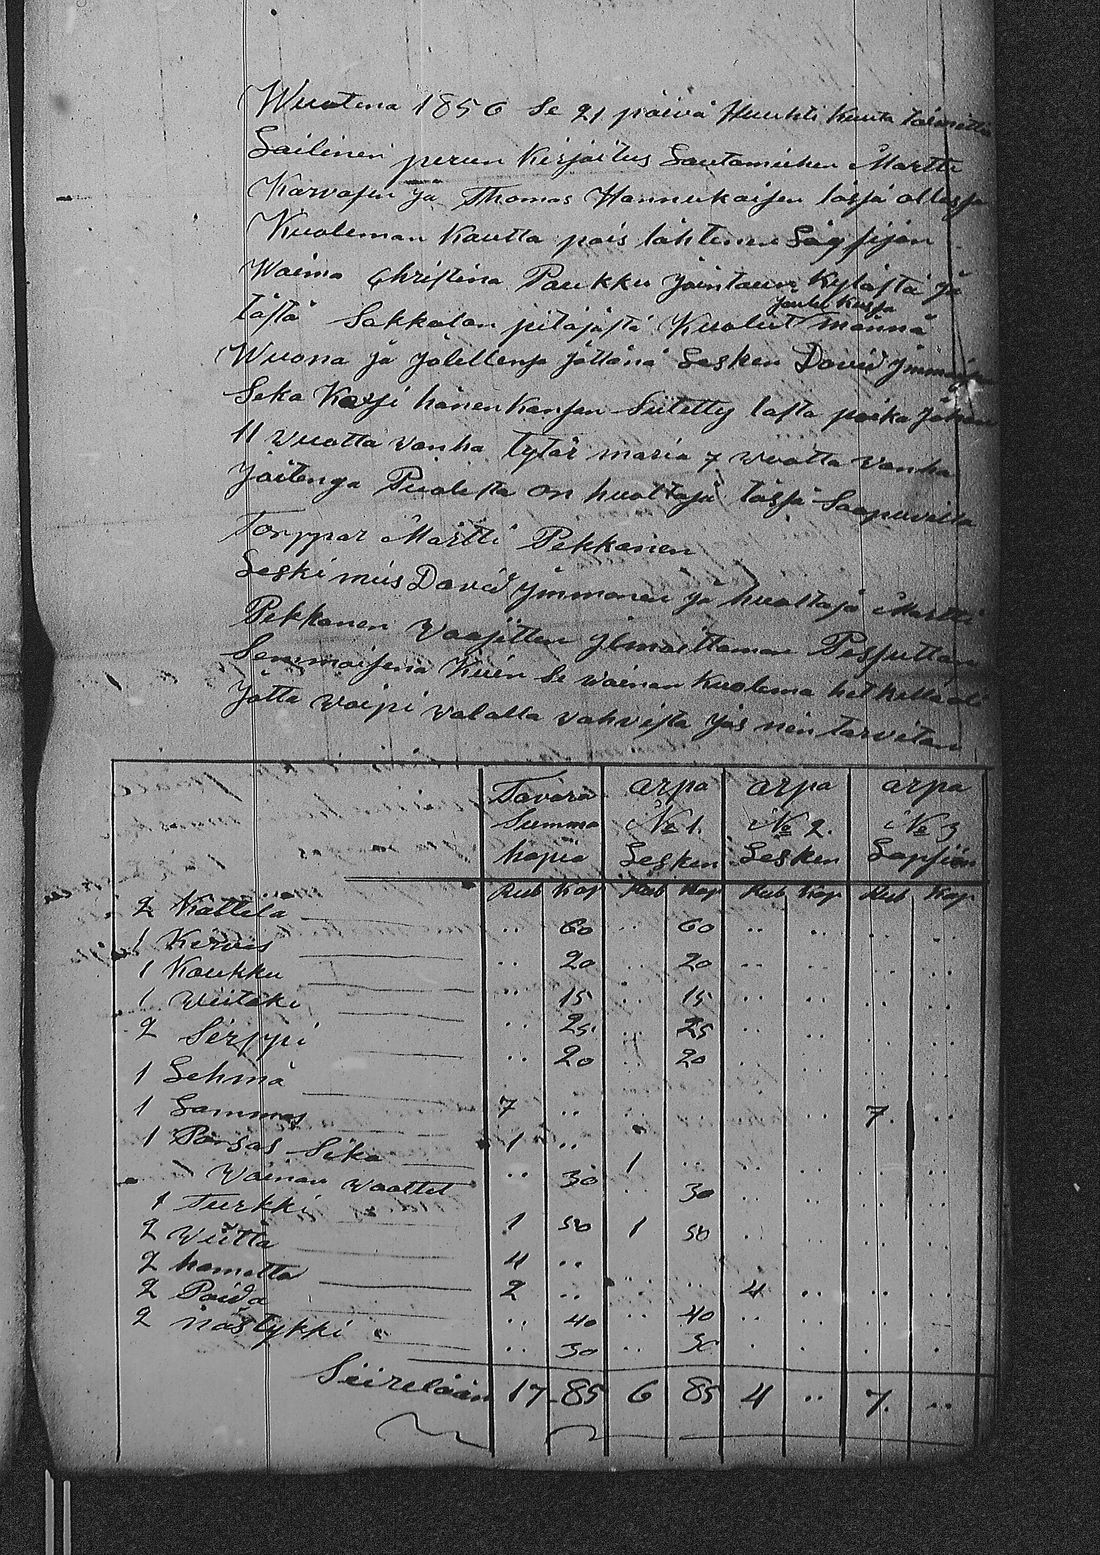 Wuotena 1856 Se 21 päivä Huuhti Kuuta toimitti
Lailinen perun Kirjoitus Lautamiehen Martti
Karvasen ja Thomas Hannukaisen läsjä ollessa
Kuoleman Kautta pois lähtenen
Waimo Christina Paukku Kylästä ja
tästä Sakkolan pitäjästä Kuollut männä
joulu Kuusa
Wuona ja jälellensä jättänä Lesken David Ymmosen
Seka Kaxsi hänen Kansan Siitetty lasta poika Johan
11 vuotta vanha tytär maria 7 wuotta vanha
joitenga Puolesta on huoltaja läsjä Saapuvilla
Torppar Martti Pekkanen
Leski mies David Ymmonen ja huoltaja Martti
Pekkanen vaajitten ilmoittaman Pesjuttan
Semmoisena Kuin Se vainan Kuolema hetkellä oli
Jotta voipi valalla vahvista jos niin tarvitan
Tavara Summa hopia
arpa № 1. Lesken
arpa № 2. Lesken
arpa № 3 Lapsiin
Rub Kop Rub Kop Rub Kop Rub Kop
2 Kattila .. 60 .. 60 .. .. .. ..
1 Kirves .. 20 .. 20 .. .. .. ..
1 Koukku .. 15 .. 15 .. .. .. ..
1 Wiitake .. 25 .. 25 .. .. .. ..
2 Sirppi .. 20 .. 20 .. .. .. ..
1 Lehmä 7 .. .. .. .. .. 7. ..
1 Lammas 1 .. 1 .. .. .. .. ..
1 Porsas Sika .. 30 .. 30 .. .. .. ..
Wainan Waattet
1 Turkki 1 50 1 50 .. .. .. ..
2 Wiitta 4 .. .. .. 4 .. .. ..
2 hametta 2 ..
2 Paida .. 40 .. 40 .. .. .. ..
2 nästykki .. 30 .. 30 . . . .
Siirelään 17 85 6 85 4 .. 7. ..